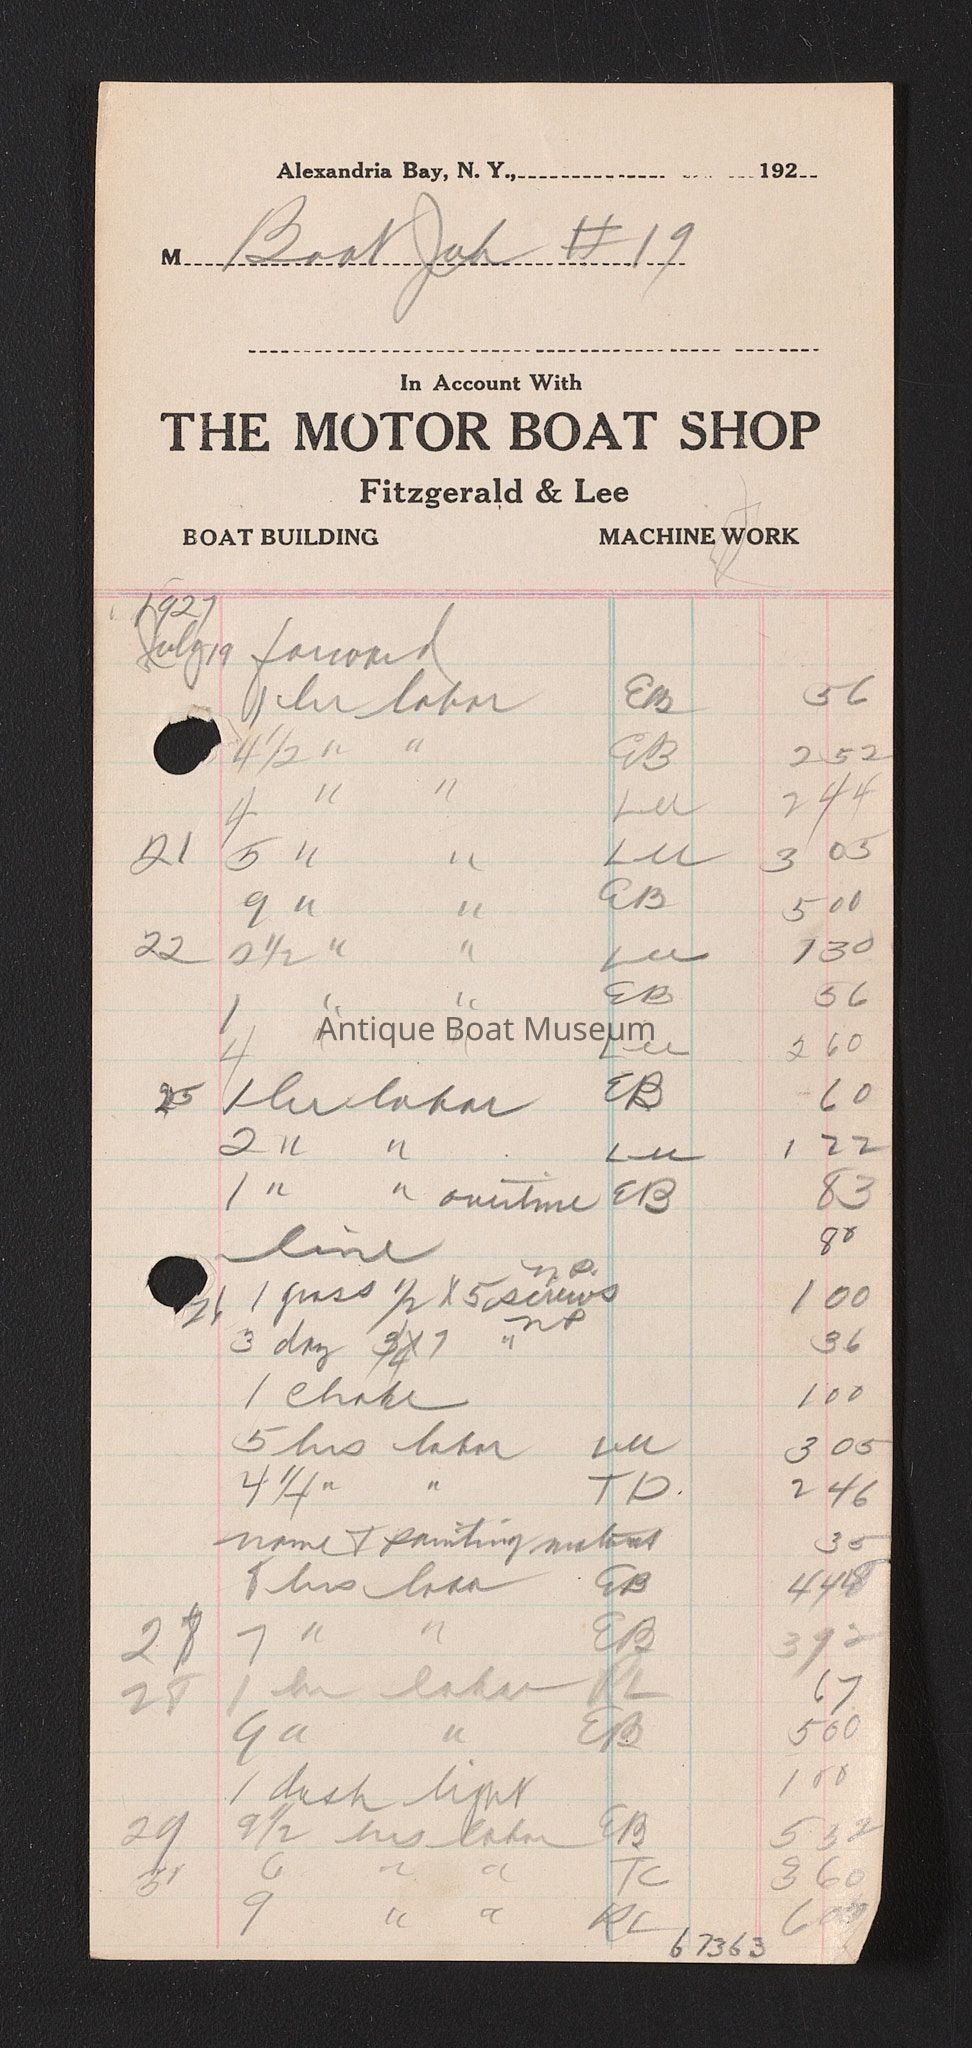 Alexandria Bay, N. Y., 192
M Boat Job #19
In Account With
THE MOTOR BOAT SHOP
Fitzgerald & Lee
BOAT BUILDING MACHINE WORK
1927
July 19 forward
1 hr labor EB 56
4 1/2 " " EB 2 52
4 " " Lee 2 44
21 5 " " Lee 3 05
9 " " EB 5 00
22 2 1/2 " " Lee 1 30
1 " " EB 56
Antique Boat Museum
4 " " Lee 2 60
25 1 hr labor EB 60
2 " " Lee 1 22
1 " " overtime EB 83
line 80
26 1 gross 1/2 X 5 screws n.P. 1 00
3 doz 3/4 X 7 " n P 36
1 choke 1 00
5 hrs labor Lee 3 05
4 1/4 " " T D. 2 46
name & painting 35
8 hrs labor EB 4 48
7 " " EB 3 92
28 1 hr labor RL 67
9 " " EB 5 00
1 dash light 1 00
29 9 1/2 hrs labor EB 5 32
6 " " TC 3 60
9 " " RL
67363